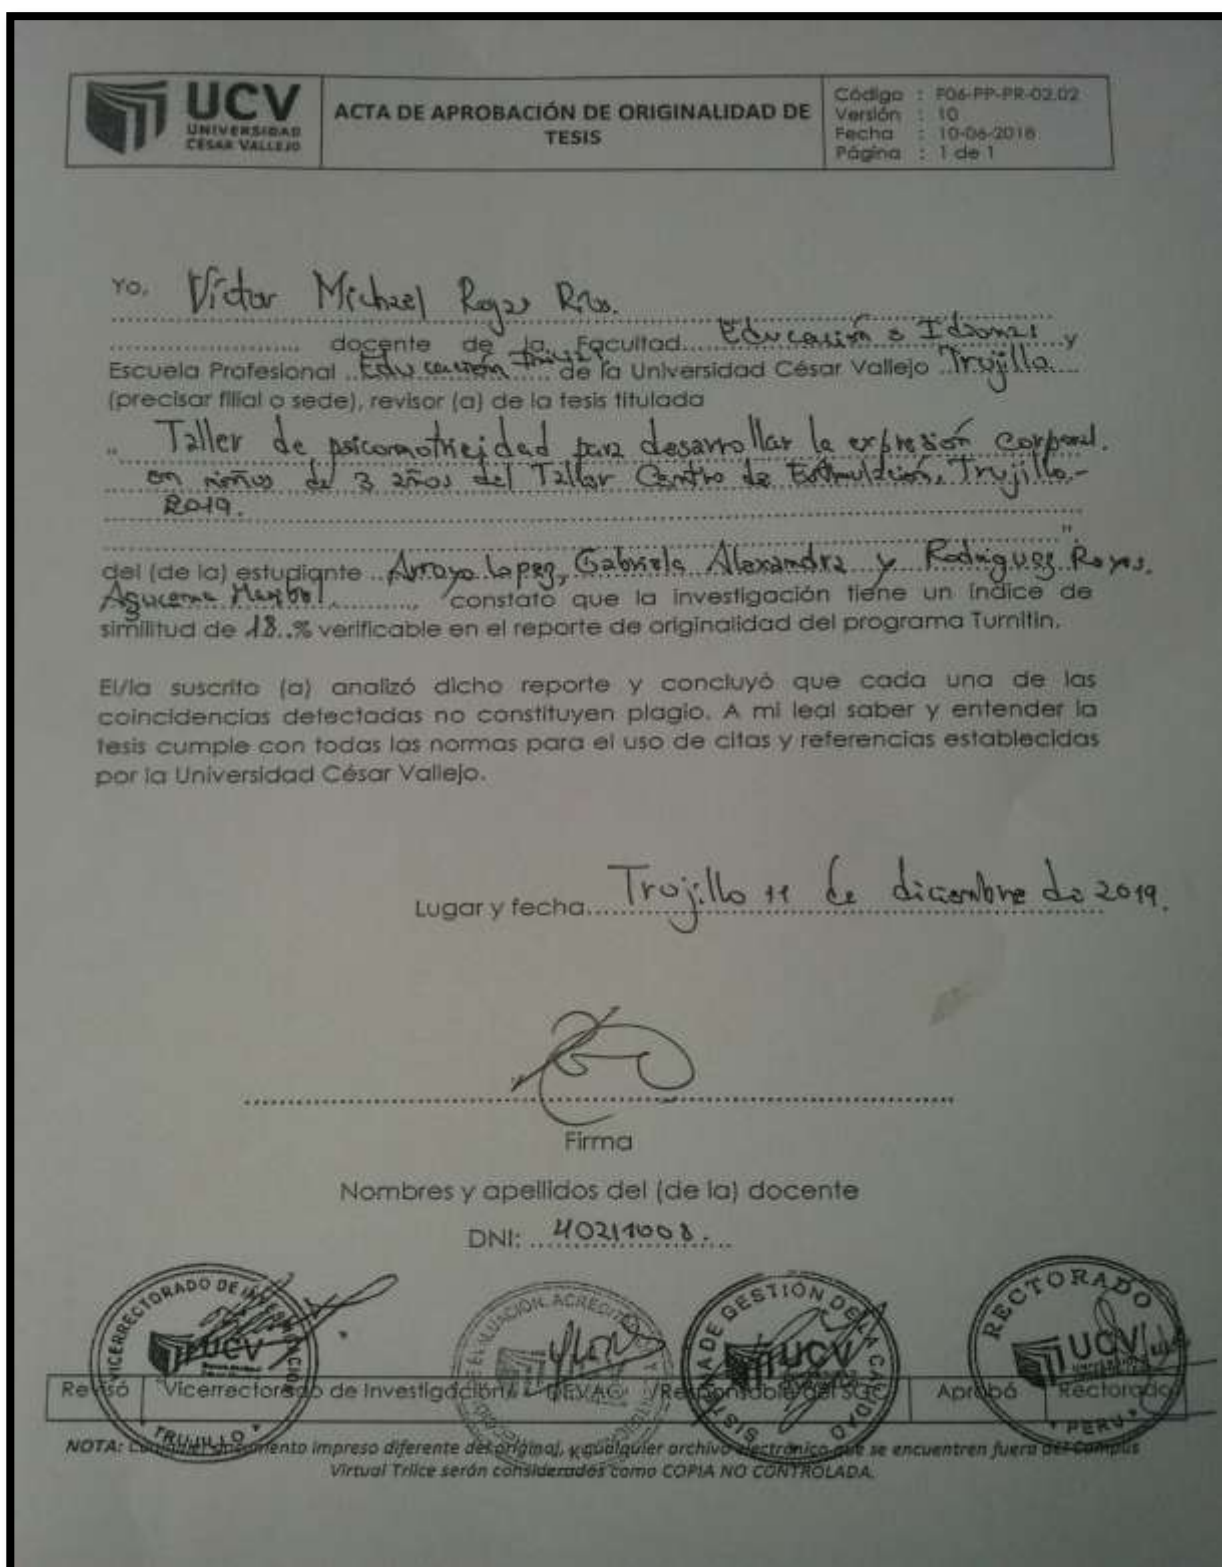 UCV
UNIVERSIDAD
CÉSAR VALLEJO
ACTA DE APROBACIÓN DE ORIGINALIDAD DE
TESIS
Código : F06-PP-PR-02.02
Versión : 10
Fecha : 10-06-2018
Página : 1 de 1
Yo, Víctor Michael Rojas Ríos.
docente de la Facultad Educación e Idiomas y
Escuela Profesional Educación de la Universidad César Vallejo Trujillo
(precisar filial o sede), revisor (a) de la tesis titulada
" Taller de psicomotricidad para desarrollar la expresión corporal.
en niños de 3 años del Taller Centro de Estimulación, Trujillo-
2019.
"
del (de la) estudiante Arroyo Lopez, Gabriela Alexandra y Rodriguez Reyes,
Azucena Maribel, constato que la investigación tiene un índice de
similitud de 18..% verificable en el reporte de originalidad del programa Turnitin.
El/la suscrito (a) analizó dicho reporte y concluyó que cada una de las
coincidencias detectadas no constituyen plagio. A mi leal saber y entender la
tesis cumple con todas las normas para el uso de citas y referencias establecidas
por la Universidad César Vallejo.
Lugar y fecha Trujillo 11 de diciembre de 2019.
Firma
Nombres y apellidos del (de la) docente
DNI: 40211008.
VICERRECTORADO DE INVESTIGACIÓN
UCV
TRUJILLO
SISTEMA DE GESTIÓN DE LA CALIDAD
UCV
RECTORADO
UCV
PERU
Revisó Vicerrectorado de Investigación / DEVAC / Responsable del SGC Aprobó Rectorado
NOTA: Cualquier documento impreso diferente del original, y cualquier archivo electrónico que se encuentren fuera del Campus
Virtual Trilce serán considerados como COPIA NO CONTROLADA.